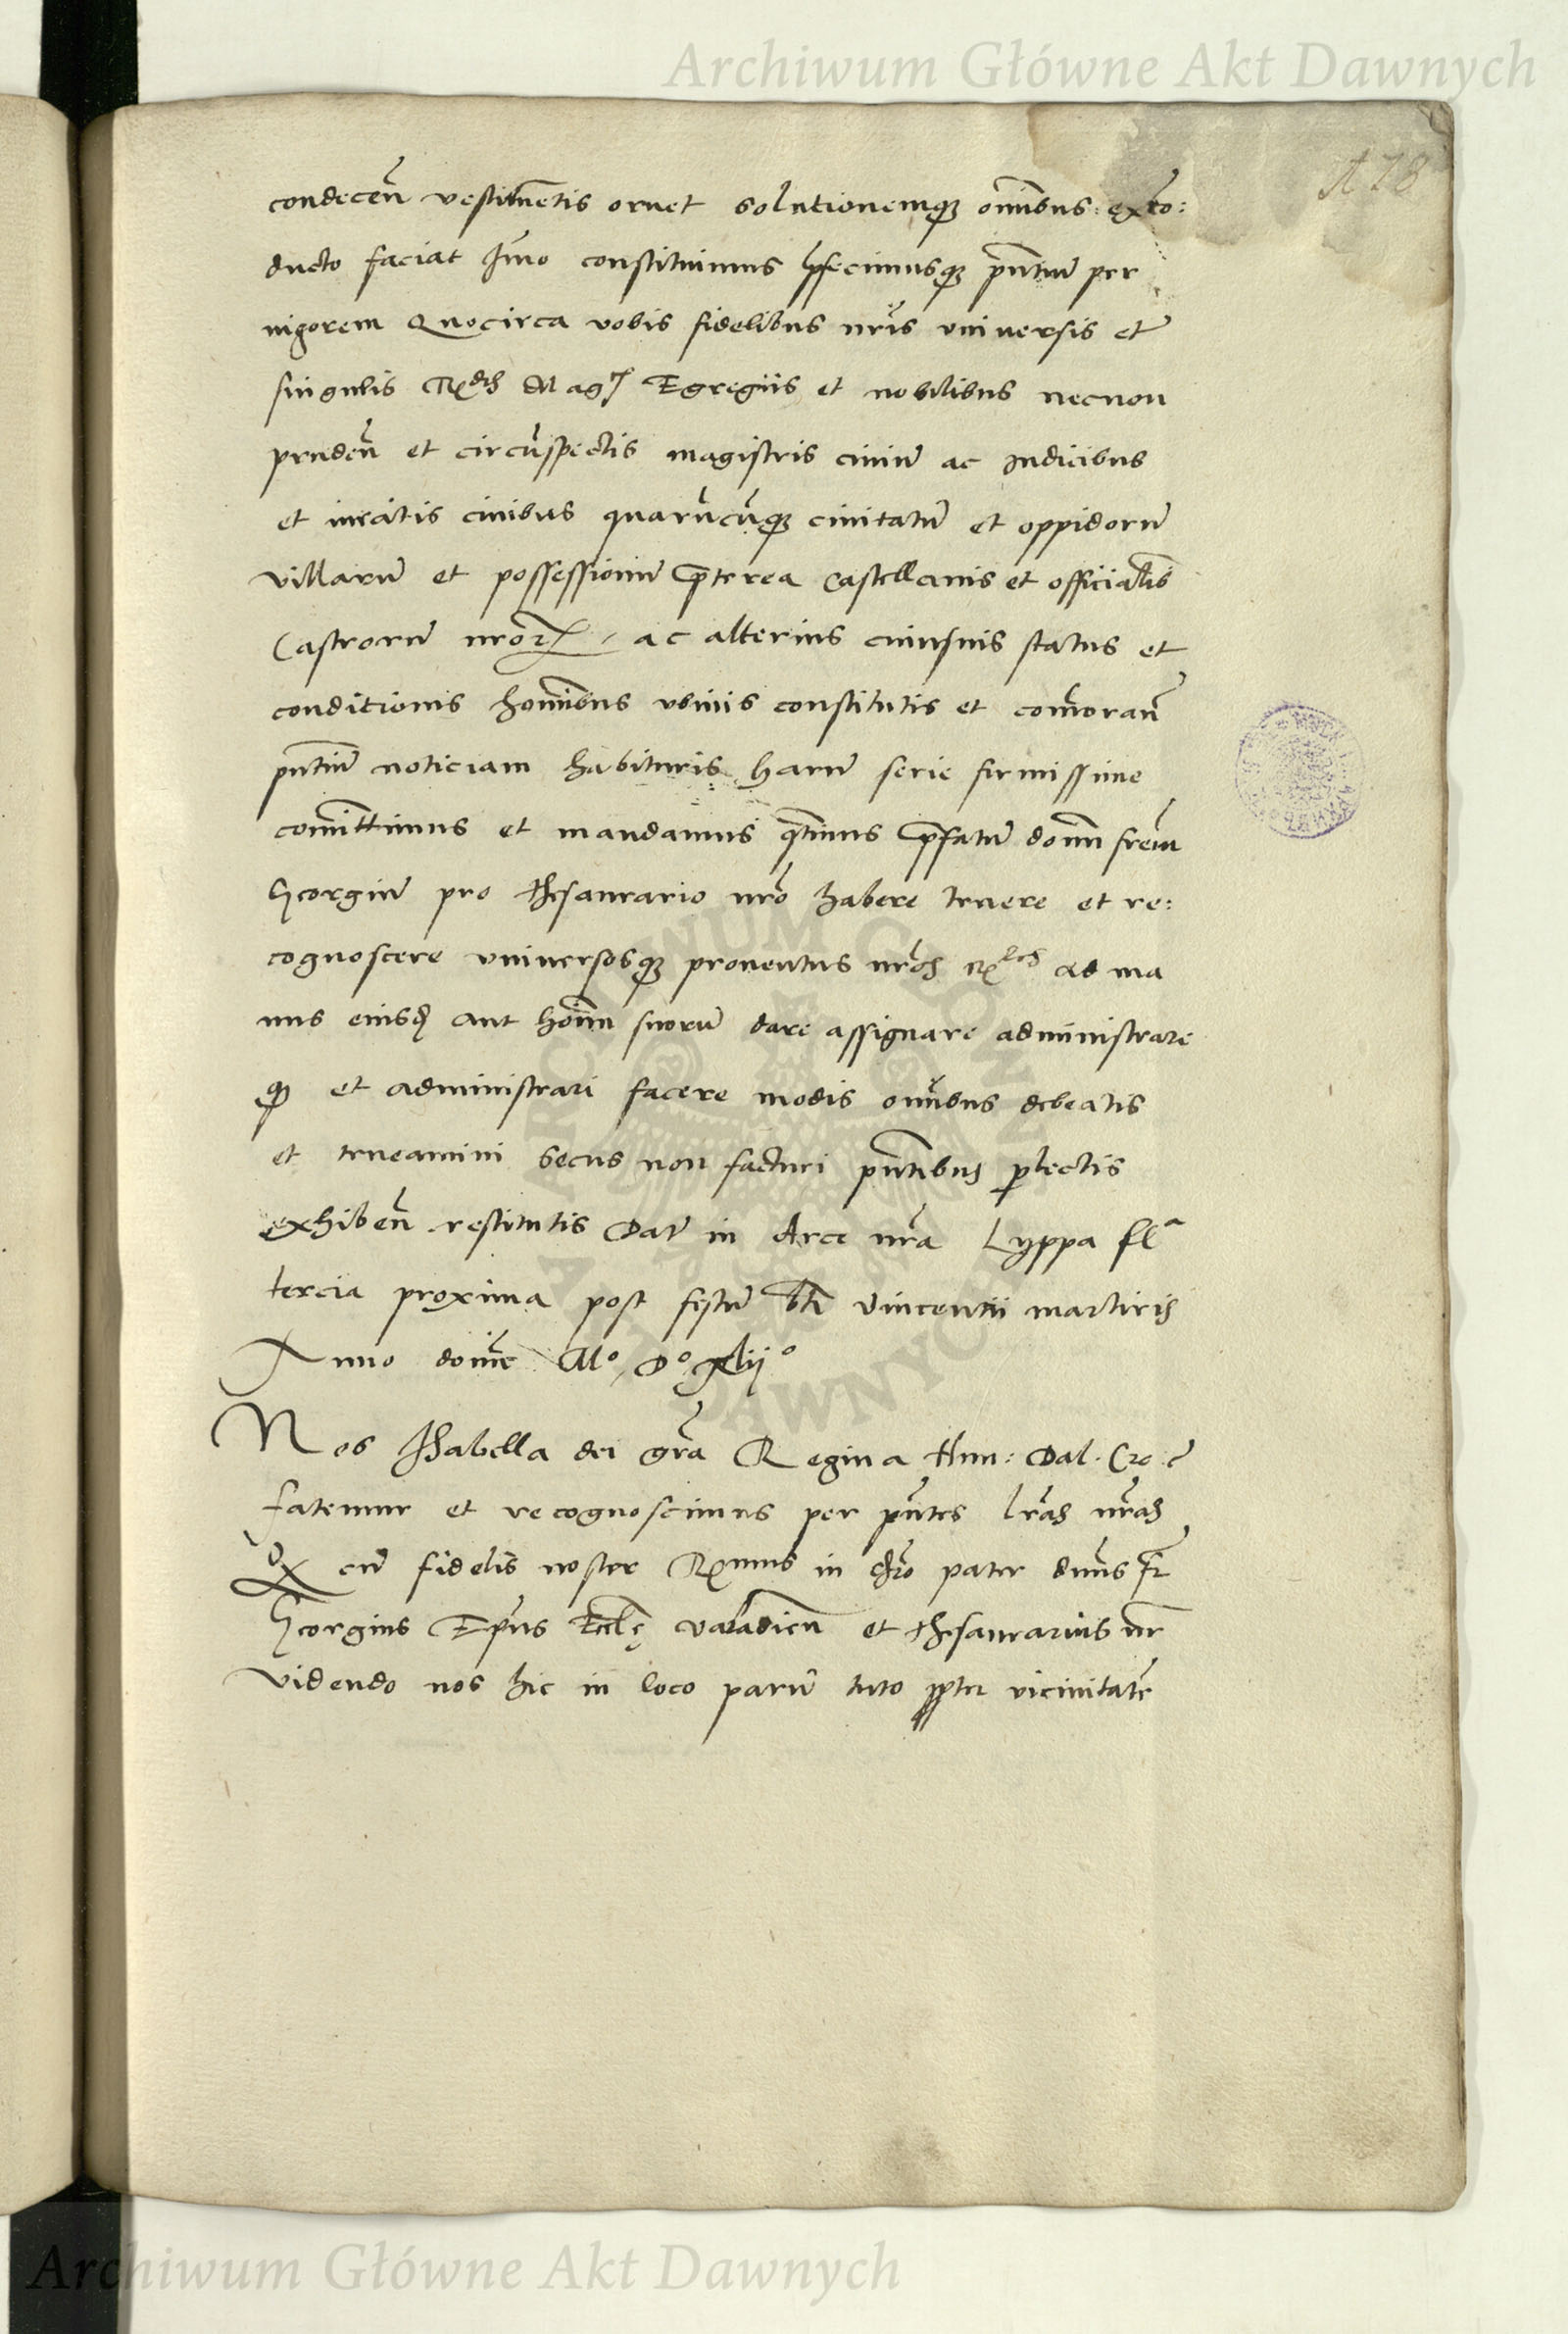 Archiwum Główne Akt Dawnych
A 78
condecen̄ vestimētis ornet solutionemqꝫ om̄ibus: exᵗro:
ducto faciat Im̄o constituimus p̄fecimusqꝫ pn̄tium per
uigorem Quocirca vobis fidelibus nr̄is vniuersis et
singulis Rᵈⁱˢ Magᶜⁱˢ Egregiis et nobilibus necnon
pruden̄ et circūspectis magistris ciuiū ac Iudicibus
et iuratis ciuibus quarūcūqꝫ ciuitatū et oppidorū
villarū et possessionū p̄terea Castellanis et officialib̄
Castrorū nr̄oꝝ, ac alterius cuiusuis status et
conditionis hom̄ibus vbiuis constitutis et com̄oran̄
pn̄tiū noticiam habituris harū serie firmissime
com̄ittimus et mandamus q̄tinus p̄fatū dom̄ frēm
Georgiū pro thesaurario nr̄o habere tenere et re:
cognoscere vniuersosqꝫ prouentus nr̄os Rˡᵉˢ ad ma
nus eiusdꝫ aut hoīm suorū dare assignare administrare
qꝫ et administrari facere modis om̄ibus debeatis
et teneamini Secus non facturi pn̄tibus ꝑlectis
exhiben̄ restitutis Dat̄ in Arce nr̄a Lyppa flᵃ
tercia proxima post festū bt̄i Vincentii martiris
Anno domī Mº Dº xliiº
Nos Isabella dei gr̄a Regina Hun: Dal. Cro ē
fatemur et recognoscimus per pn̄tes lr̄as nr̄as
Qꝫ cū fidelis noster Rmus in chr̄o pater dn̄us fr̄
Georgius Ep̄us Eccl̄ę varadien̄ et thesaurarius nr̄
videndo nos hic in loco parū tuto ꝓpter vicinitatē
ARCHIWUM GŁÓWNE AKT DAWNYCH
Archiwum Główne Akt Dawnych